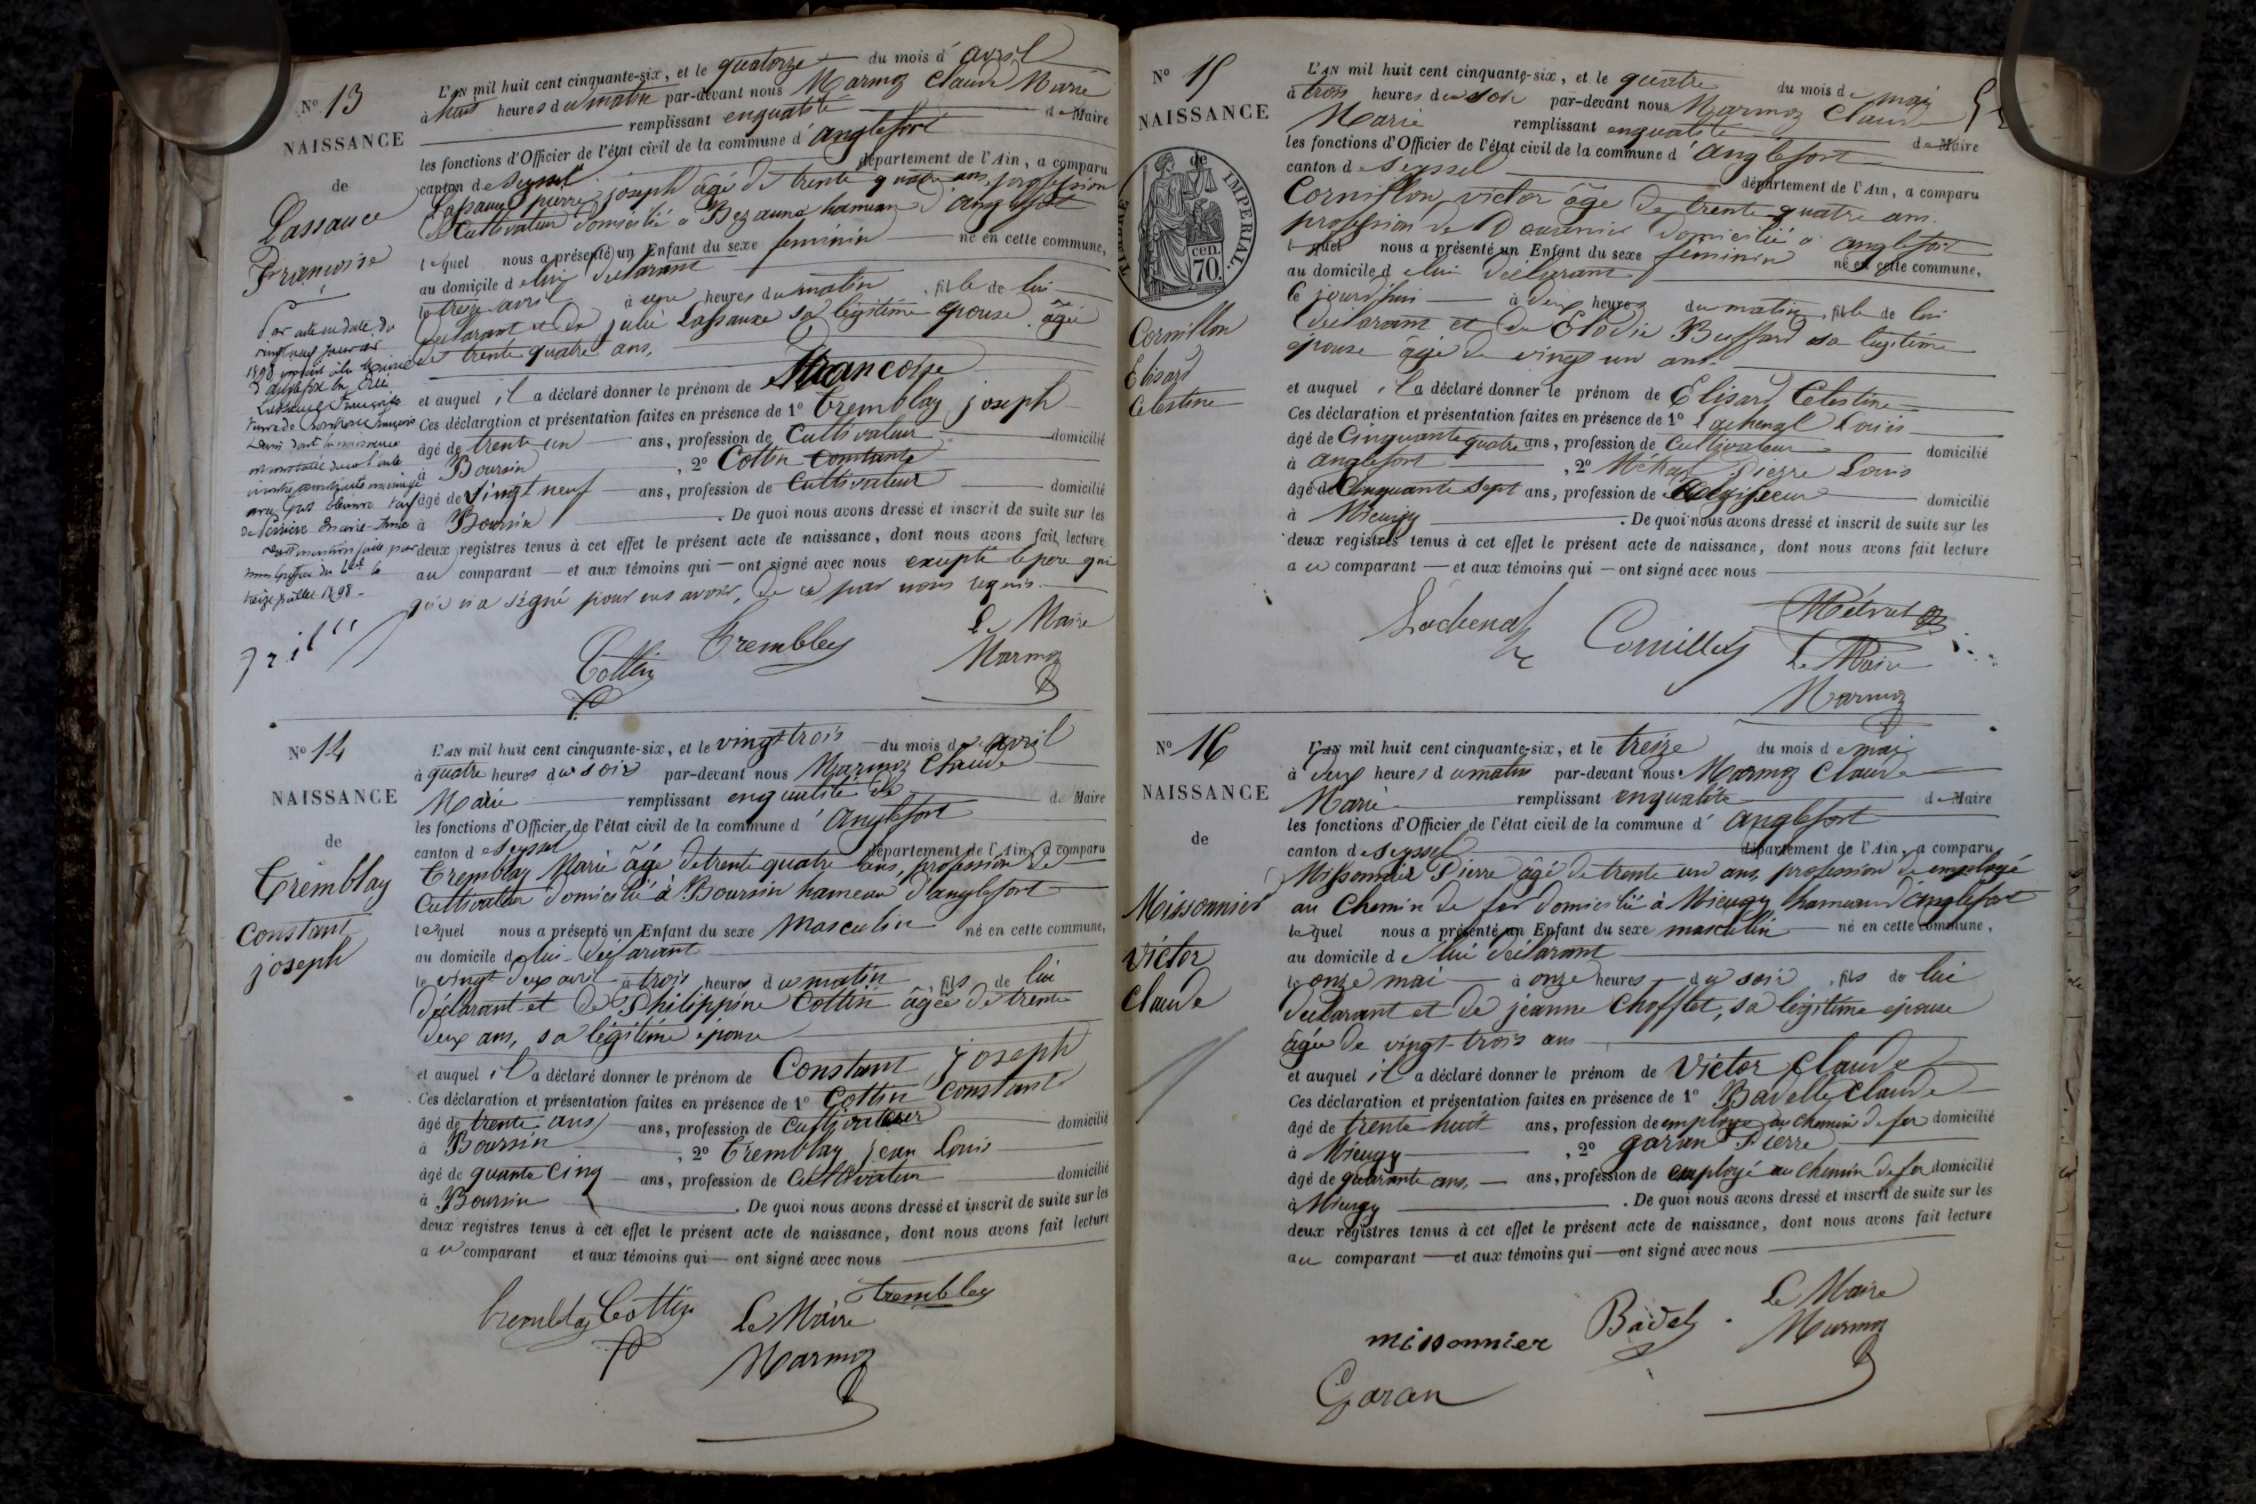 N° 13
NAISSANCE
de
Lassauce
Françoise
Par acte en date du
vingt neuf janvier
1898
L'AN mil huit cent cinquante-six, et le quatorze du mois d'avril
à huit heures du matin par-devant nous Marmoz Claude Marie
remplissant en qualité de Maire
les fonctions d'Officier de l'état civil de la commune d'anglefort
canton de Seyssel département de l'Ain, a comparu
pierre joseph âgé de trente quatre ans, profession
de Cultivateur domicilié a hameau d'anglefort
lequel nous a présenté un Enfant du sexe feminin né en cette commune,
au domicile de lui déclarant
le treize avril à une heures du matin, fille de lui
déclarant et de julie sa légitime épouse âgée
de trente quatre ans,
et auquel il a déclaré donner le prénom de Francoise
Ces déclaration et présentation faites en présence de 1° Tremblay joseph
âgé de trente un ans, profession de Cultivateur domicilié
à Boursin, 2° Cottin Constant
âgé de vingt neuf ans, profession de Cultivateur domicilié
à Boursin. De quoi nous avons dressé et inscrit de suite sur les
deux registres tenus à cet effet le présent acte de naissance, dont nous avons fait lecture
au comparant et aux témoins qui ont signé avec nous excepté le père qui
n'a signé pour ne savoir, de ce par nous requis.
Cottin Trembley Le Maire
Marmoz
N° 14
NAISSANCE
de
Tremblay
Constant
joseph
L'AN mil huit cent cinquante-six, et le vingt trois du mois d'avril
à quatre heures du soir par-devant nous Marmoz Claude
Marie remplissant en qualité de de Maire
les fonctions d'Officier de l'état civil de la commune d'anglefort
canton de Seyssel département de l'Ain, a comparu
Tremblay Marie âgé de trente quatre ans, profession de
Cultivateur domicilié à Boursin hameau d'anglefort
lequel nous a présenté un Enfant du sexe masculin né en cette commune,
au domicile de lui déclarant
le vingt deux avril à trois heures du matin, fils de lui
déclarant et de Philippine Cottin âgée de trente
deux ans, sa légitime épouse
et auquel il a déclaré donner le prénom de Constant joseph
Ces déclaration et présentation faites en présence de 1° Cottin Constant
âgé de trente ans ans, profession de Cultivateur domicilié
à Boursin, 2° Tremblay jean Louis
âgé de quante cinq ans, profession de Cultivateur domicilié
à Boursin. De quoi nous avons dressé et inscrit de suite sur les
deux registres tenus à cet effet le présent acte de naissance, dont nous avons fait lecture
au comparant et aux témoins qui ont signé avec nous
Tremblay Cottin Le Maire Trembley
Marmoz
N° 15
NAISSANCE
de
TIMBRE IMPERIAL.
70 cen.
Cornillon
Elisard
Celestine
L'AN mil huit cent cinquante-six, et le quatre du mois de mai
à trois heures du soir par-devant nous Marmoz Claude
Marie remplissant en qualité de Maire
les fonctions d'Officier de l'état civil de la commune d'anglefort
canton de Seyssel département de l'Ain, a comparu
Cornillon, victor âgé de trente quatre ans.
profession de Douanier domicilié à anglefort
lequel nous a présenté un Enfant du sexe feminin né en cette commune,
au domicile de lui déclarant
le jourd'hui à deux heures du matin, fille de lui
déclarant et de Elodie Buffard sa légitime
épouse âgée de vingt un ans.
et auquel il a déclaré donner le prénom de Elisard Celestine
Ces déclaration et présentation faites en présence de 1° Lachenal Louis
âgé de Cinquante quatre ans, profession de Cultivateur domicilié
à anglefort, 2° Métral Pierre Louis
âgé de Cinquante Sept ans, profession de domicilié
à Mieugy. De quoi nous avons dressé et inscrit de suite sur les
deux registres tenus à cet effet le présent acte de naissance, dont nous avons fait lecture
au comparant et aux témoins qui ont signé avec nous
Lachenal Cornillon Métral
Le Maire
Marmoz
N° 16
NAISSANCE
de
Missonnier
Victor
Claude
L'AN mil huit cent cinquante-six, et le treize du mois de mai
à deux heures du matin par-devant nous Marmoz Claude
Marie remplissant en qualité de Maire
les fonctions d'Officier de l'état civil de la commune d'anglefort
canton de Seyssel département de l'Ain, a comparu
Missonnier Pierre âgé de trente un ans, profession de employé
au Chemin de fer domicilié à Mieugy hameau d'anglefort
lequel nous a présenté un Enfant du sexe masculin né en cette commune,
au domicile de lui déclarant
le onze mai à onze heures du soir, fils de lui
déclarant et de jeanne Chofflet, sa légitime épouse
âgée de vingt-trois ans
et auquel il a déclaré donner le prénom de Victor Claude
Ces déclaration et présentation faites en présence de 1° Badelle Claude
âgé de trente huit ans, profession de employé au chemin de fer domicilié
à Mieugy, 2° garan Pierre
âgé de quarante ans, ans, profession de employé au chemin de fer domicilié
à Mieugy. De quoi nous avons dressé et inscrit de suite sur les
deux registres tenus à cet effet le présent acte de naissance, dont nous avons fait lecture
au comparant et aux témoins qui ont signé avec nous
missonnier Badel Le Maire
Marmoz
Garan